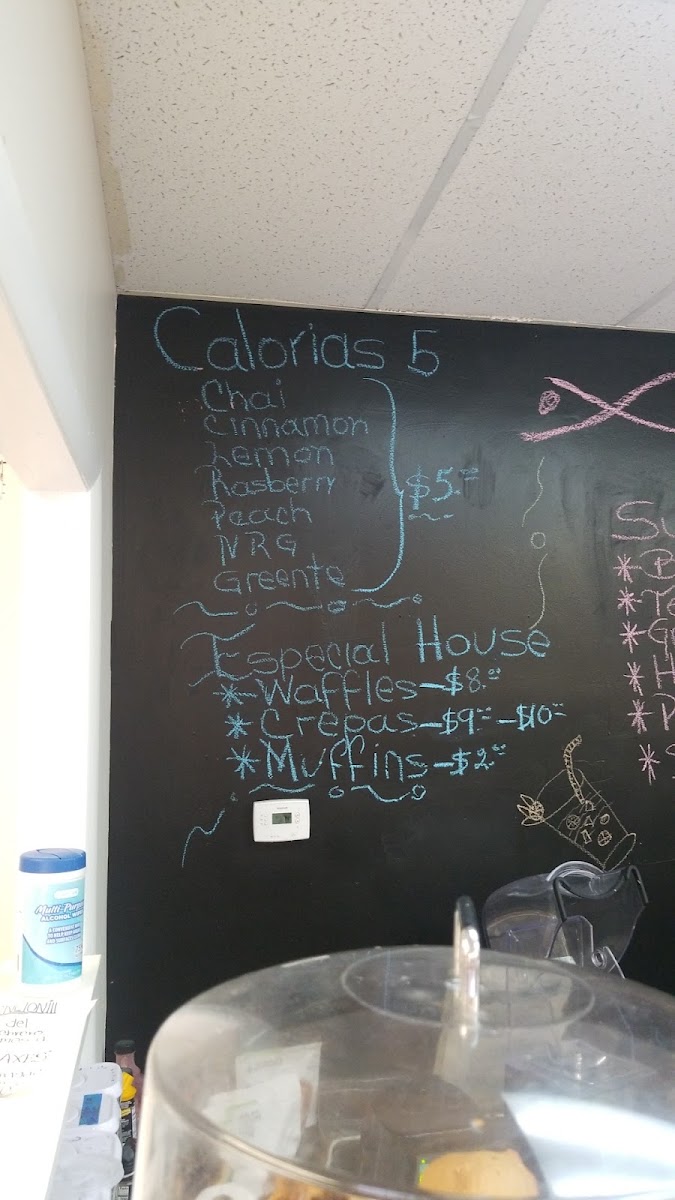 Calorias 5
Chai
Cinnamon
Lemon
Rasberry
Peach
NRG
Greente
$5.00
Especial House
*Waffles-$8.00
*Crepas-$9.00-$10.00
*Muffins-$2.00
Multi-Purpose
ALCOHOL
del